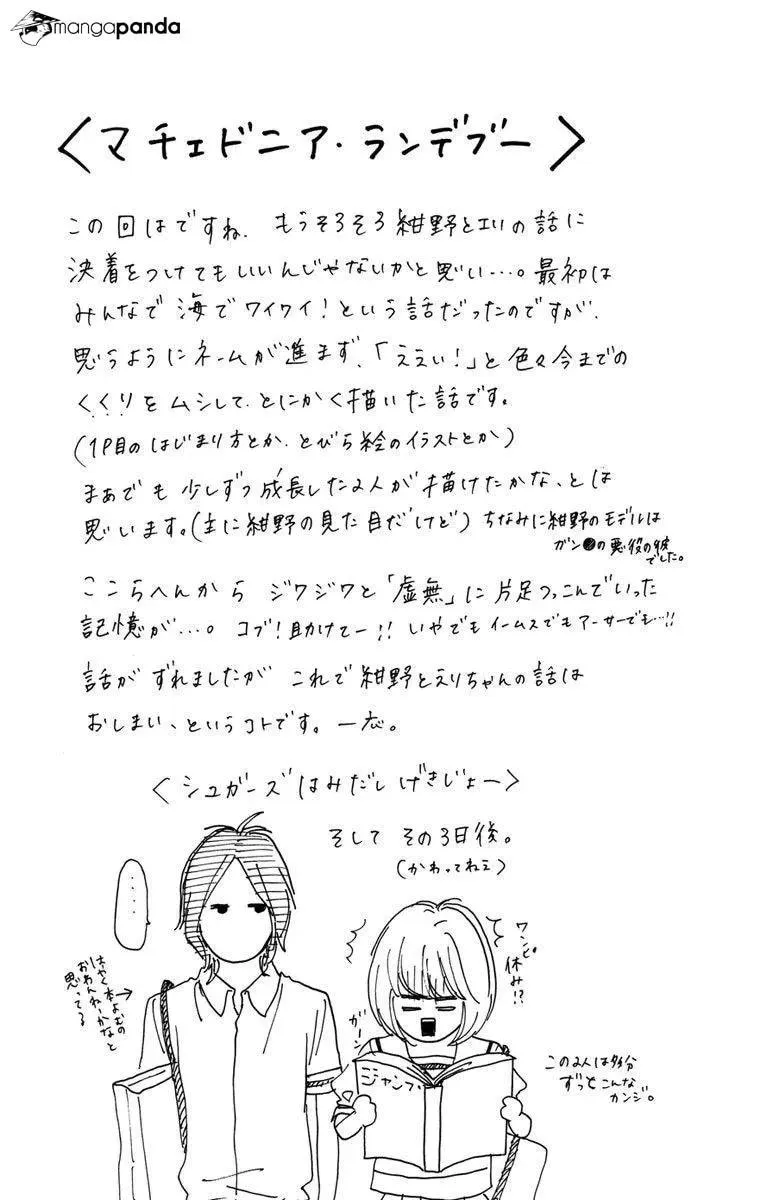 mangapanda
〈マチェドニア・ランデブー〉
この回はですね、もうそろそろ紺野とエリの話に
決着をつけてもいいんじゃないかと思い…。最初は
みんなで海でワイワイ!という話だったのですが、
思うようにネームが進まず、「ええい!」と色々今までの
くくりをムシして、とにかく描いた話です。
(1P目のはじまり方とか、とびら絵のイラストとか)
まあでも少しずつ成長した2人が描けたかな、とは
思います。(主に紺野の見た目だけど)ちなみに紺野のモデルは
ガン●の悪役の彼
でした。
ここらへんからジワジワと「虚無」に片足つっこんでいった
記憶が…。コブ!助けてー!!いやでもイームスでもアーサーでも…!!
話がずれましたがこれで紺野とえりちゃんの話は
おしまい、というコトです。一応。
〈シュガーズはみだしげきじょー〉
そしてその3日後。
(かわってねえ)
……
はやく本よむの
おわんねーかなと
思ってる
ワンピ
休み!?
ガーン
ジャンプ
この2人は多分
ずっとこんな
カンジ。